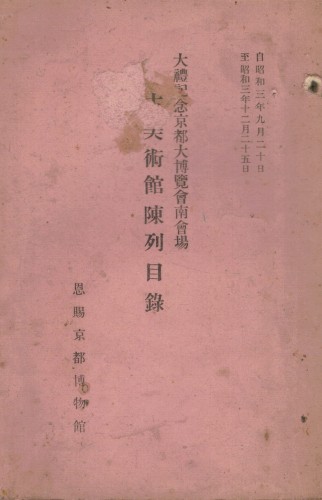 自昭和三年九月二十日
至昭和三年十二月二十五日
大禮記念京都大博覽會南會場
美術館陳列目錄
恩賜京都博物館